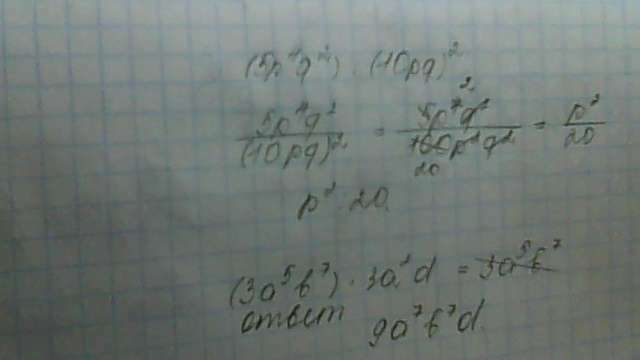 (5p⁴q²) : (10pq)²
5p⁴q² / (10pq)² = 5p⁴q² / 100p²q² = p² / 20
p² : 20
(3a⁵b⁷) · 3a²d = 3a⁵b⁷
ответ 9a⁷b⁷d.